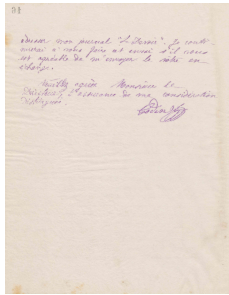 adresse mon journal "L'Aurore". Je conti-
nuerai à vous faire cet envoi s'il vous
est agréable de m'envoyer le vôtre en
échange.
Veuillez agréer Monsieur le
Directeur l'assurance de ma considération
distinguée.